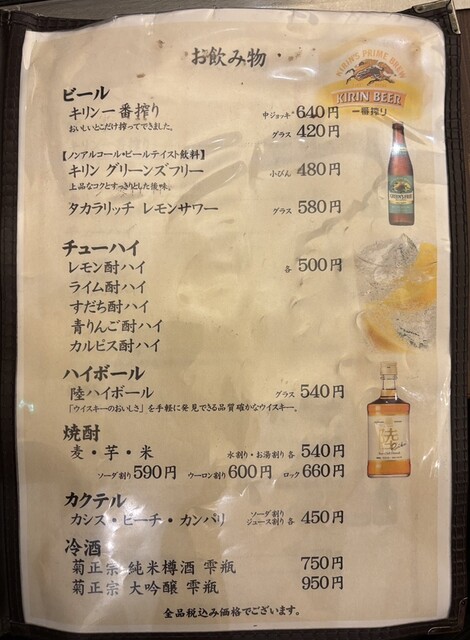 お飲み物
KIRIN'S PRIME BREW
KIRIN BEER
一番搾り
ビール
キリン一番搾り 中ジョッキ 640円
おいしいとこだけ搾ってできました。 グラス 420円
【ノンアルコール・ビールテイスト飲料】
キリン グリーンズフリー 小びん 480円
上品なコクとすっきりとした後味。
タカラリッチ レモンサワー グラス 580円
チューハイ
レモン酎ハイ 各 500円
ライム酎ハイ
すだち酎ハイ
青りんご酎ハイ
カルピス酎ハイ
ハイボール
陸ハイボール グラス 540円
「ウイスキーのおいしさ」を手軽に発見できる品質確かなウイスキー。
焼酎
麦・芋・米 水割り・お湯割り 各 540円
ソーダ割り 590円 ウーロン割り 600円 ロック 660円
カクテル
カシス・ピーチ・カンパリ ソーダ割り ジュース割り 各 450円
冷酒
菊正宗 純米樽酒 雫瓶 750円
菊正宗 大吟醸 雫瓶 950円
全品税込み価格でございます。